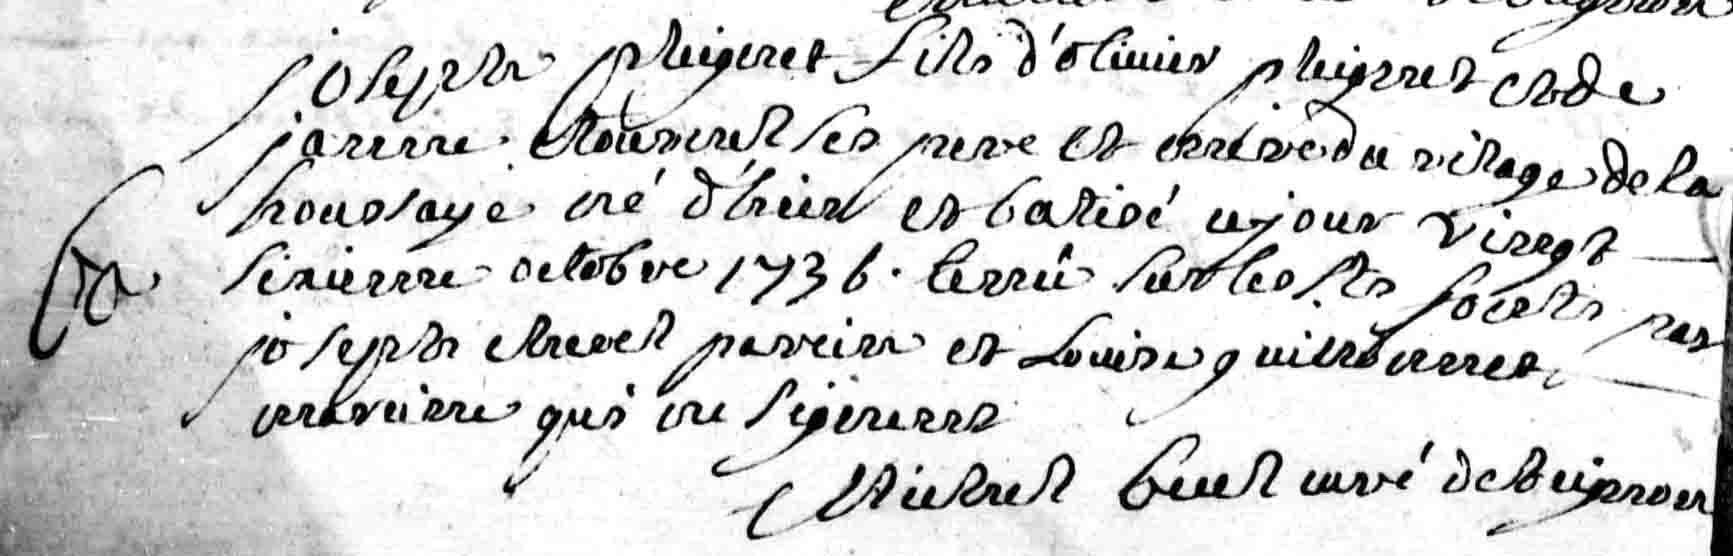 joseph pleigret fils d'olivier pleigret et de
janne ses pere et mere du vilage de la
houssaye né d'hier et batisé ce jour vingt
sixieme octobre 1736. tenu sur les sts fonts par
joseph parein et Louise
maraine qui ne signent
Michel Buel curé de Beignon